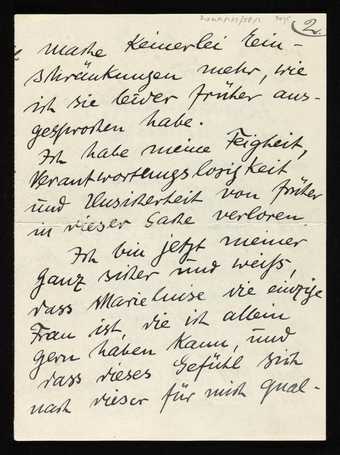 2.
mache keinerlei Ein-
schränkungen mehr, wie
ich sie leider früher aus-
gesprochen habe.
Ich habe meine Feigheit,
Verantwortungslosigkeit
und Unsicherheit von früher
in dieser Sache verloren
Ich bin jetzt meiner
ganz sicher und weiss,
dass Marieluise die einzige
Frau ist, die ich allein
gern haben kann, und
dass dieses Gefühl sich
nach dieser für mich qual-